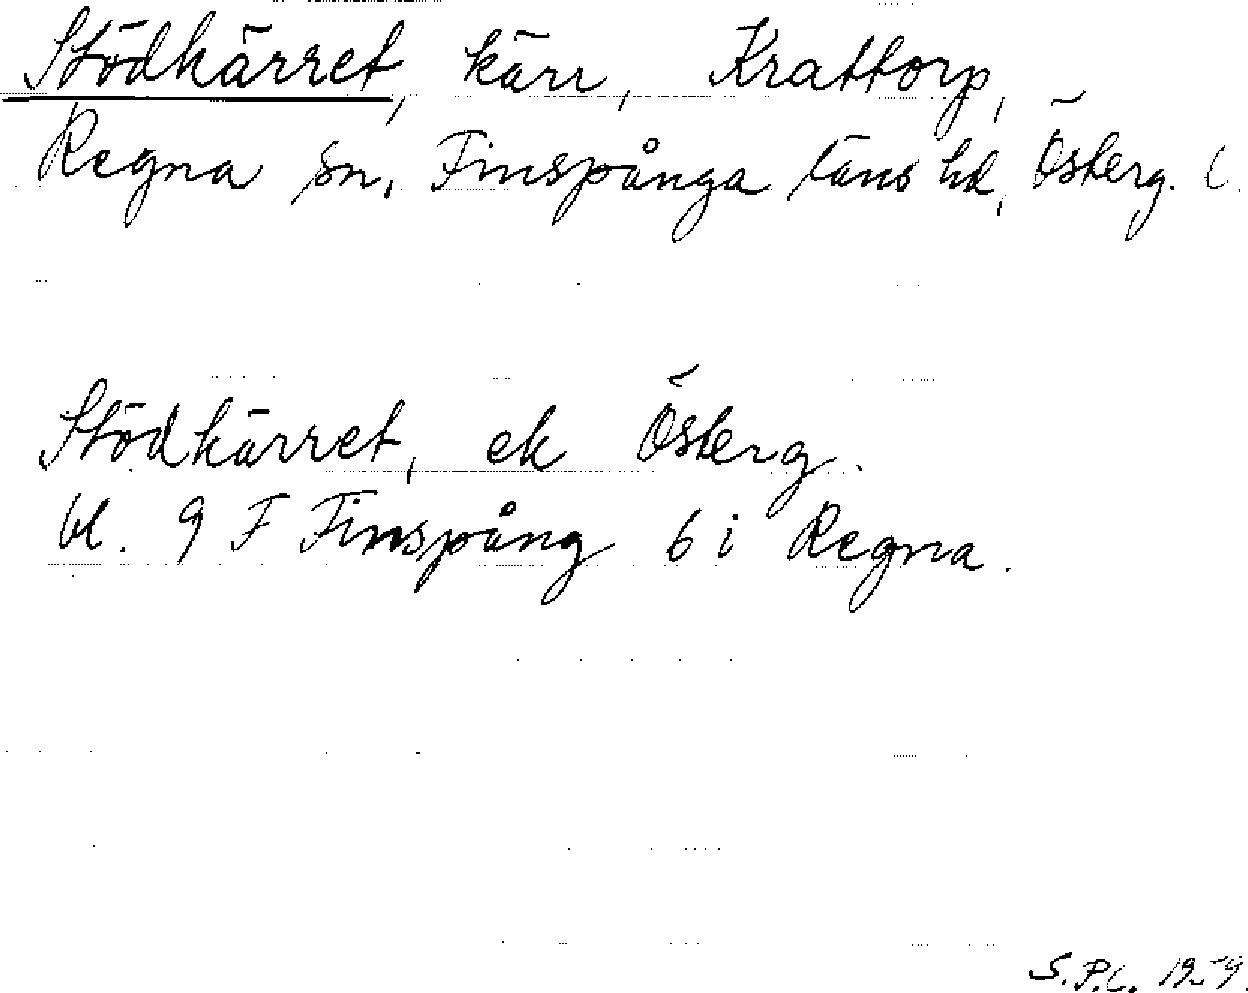 Stödkärret, kärr, Krattorp,
Regna sn, Finspånga läns hd, Österg. l.
Stödkärret, ek Österg.
bl. 9 F Finspång 6 i Regna.
S.P.C. 1959.